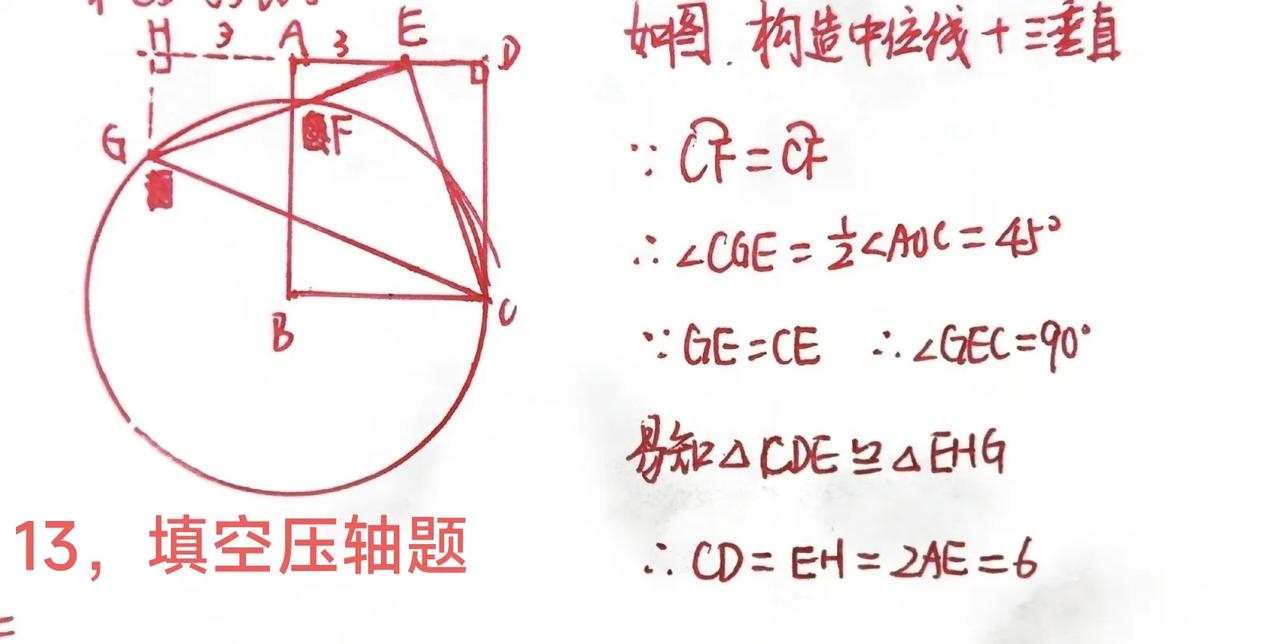 H 3 A 3 E D
G F
B C
如图.构造中位线+三垂直
∵ CF=CF
∴ ∠CGE = 1/2∠AOC = 45°
∵ GE=CE ∴ ∠GEC=90°
易知△CDE≌△EHG
∴ CD = EH = 2AE = 6
13，填空压轴题
=